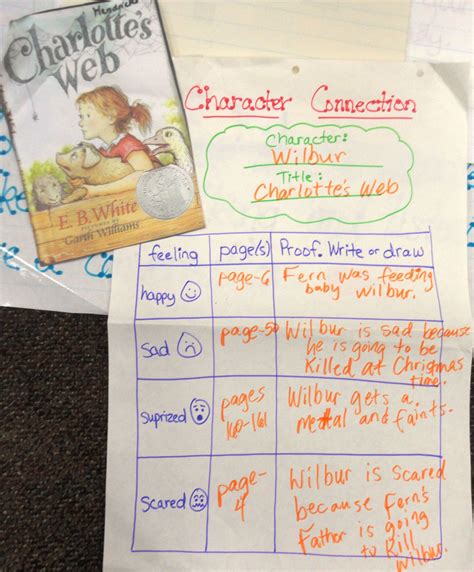 Hendricks
Charlotte's
Web
E. B. White
PICTURES BY
Garth Williams
Character Connection
Character:
Wilbur
Title:
Charlotte's Web
feeling
page(s)
Proof. Write or draw
happy
page-6
Fern was feeding
baby wilbur.
Sad
page-50
Wilbur is sad because
he is going to be
Killed at Christmas
time.
Suprized
pages
160-161
Wilbur gets a
metal and faints.
Scared
page-
4
Wilbur is scared
because Fern's
Father is going
to Kill
Wilbur.